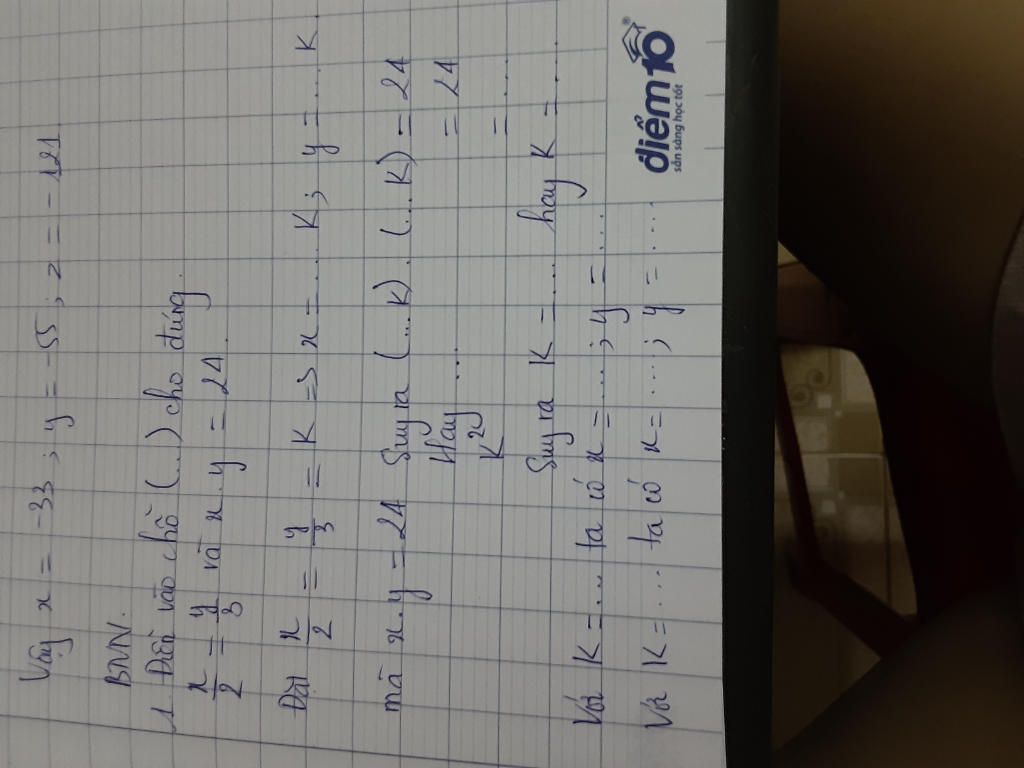 Vậy x = -33 ; y = -55 ; z = -121
BNN.
1. Điền vào chỗ (...) cho đúng.
x/2 = y/3 và x . y = 24.
Đặt x/2 = y/3 = K => x = .... K ; y = .... K
mà x . y = 24 Suy ra (... K) . (... K) = 24
Hay .... = 24
K² = ....
Suy ra K = .... hay K = ....
Với K = ... ta có x = .... ; y = ....
Với K = ... ta có x = .... ; y = ....
điểm10®
sẵn sàng học tốt